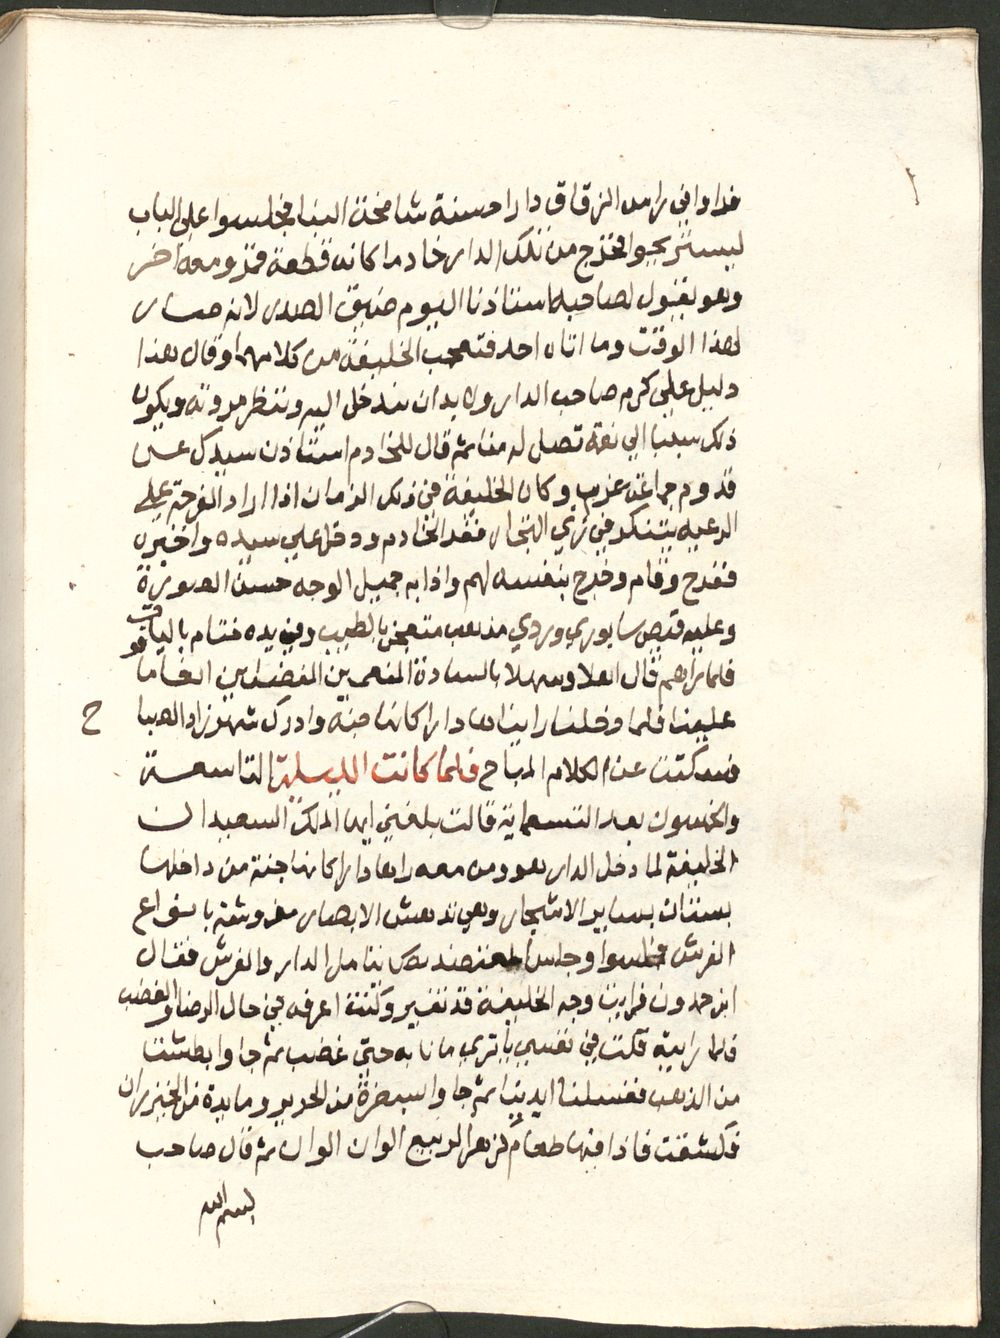 فراوا في راس الزقاق دارا حسنة شامخة البنا فجلسوا على الباب
ليستريحوا فخرج من تلك الدار خادما كانه قطعة قمر ومعه اخر
وهو يقول لصاحبه استاذنا اليوم ضيق الصدر لانه صار
لهذا الوقت وما اتاه احد فتعجب الخليفة من كلامهما وقال هذا
دليل على كرم صاحب الدار ولا بد ان ندخل اليه وننظر مروته ويكون
ذلك سببا الى نعمة تصل له منا ثم قال للخادم استاذن سيدك على
قدوم جماعة غرب وكان الخليفة في ذلك الزمان اذا اراد الفرجة على
الرعيه يتنكر في زي التجار فقد الخادم ودخل على سيده واخبره
ففرح وقام وخرج بنفسه لهم واذا به جميل الوجه حسن الصورة
وعليه قميص سابوري وردي مذهب متعجن بالطيب وفي يده ختام بالياقوت
فلما راهم قال اهلا وسهلا بالسادة المنعمين المفضلين انعاما
علينا فلما دخلنا راينا لها دارا كانها جنة وادرك شهر زاد الصباح
فسكتت عن الكلام المباح فلما كانت الليلة التاسعة
والخمسون بعد التسعماية قالت بلغني ايها الملك السعيد ان
الخليفة لما دخل الدار هو ومن معه راها دارا كانها جنة من داخلها
بستان بساير الاشجار وهي تدهش الابصار مفروشة بانواع
الفرش فجلسوا وجلس المعتضد يتامل الدار والفرش فقال
ابن حمدون فرايت وجه الخليفة قد تغير وكنت اعرفه في حال الرضا والغضب
فلما رايته قلت في نفسي يا ترى ما نابه حتى غضب ثم جاوا بطشت
من الذهب فغسلنا ايدينا ثم جاوا بسفرة من الحرير ومايدة من الخيزران
فكشفت فاذا فيها طعام كزهر الربيع الوان الوان ثم قال صاحب
بسم الله